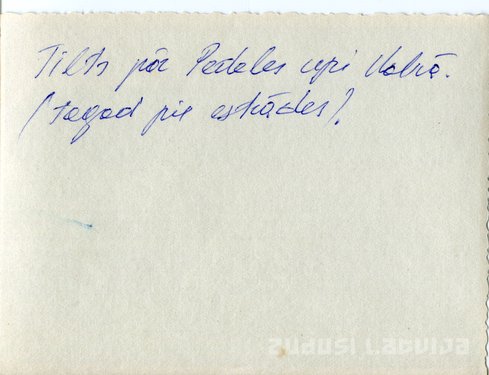 Tilts pār Pedeles upi Valkā.
(tagad pie estrādes).
zudusi Latvija